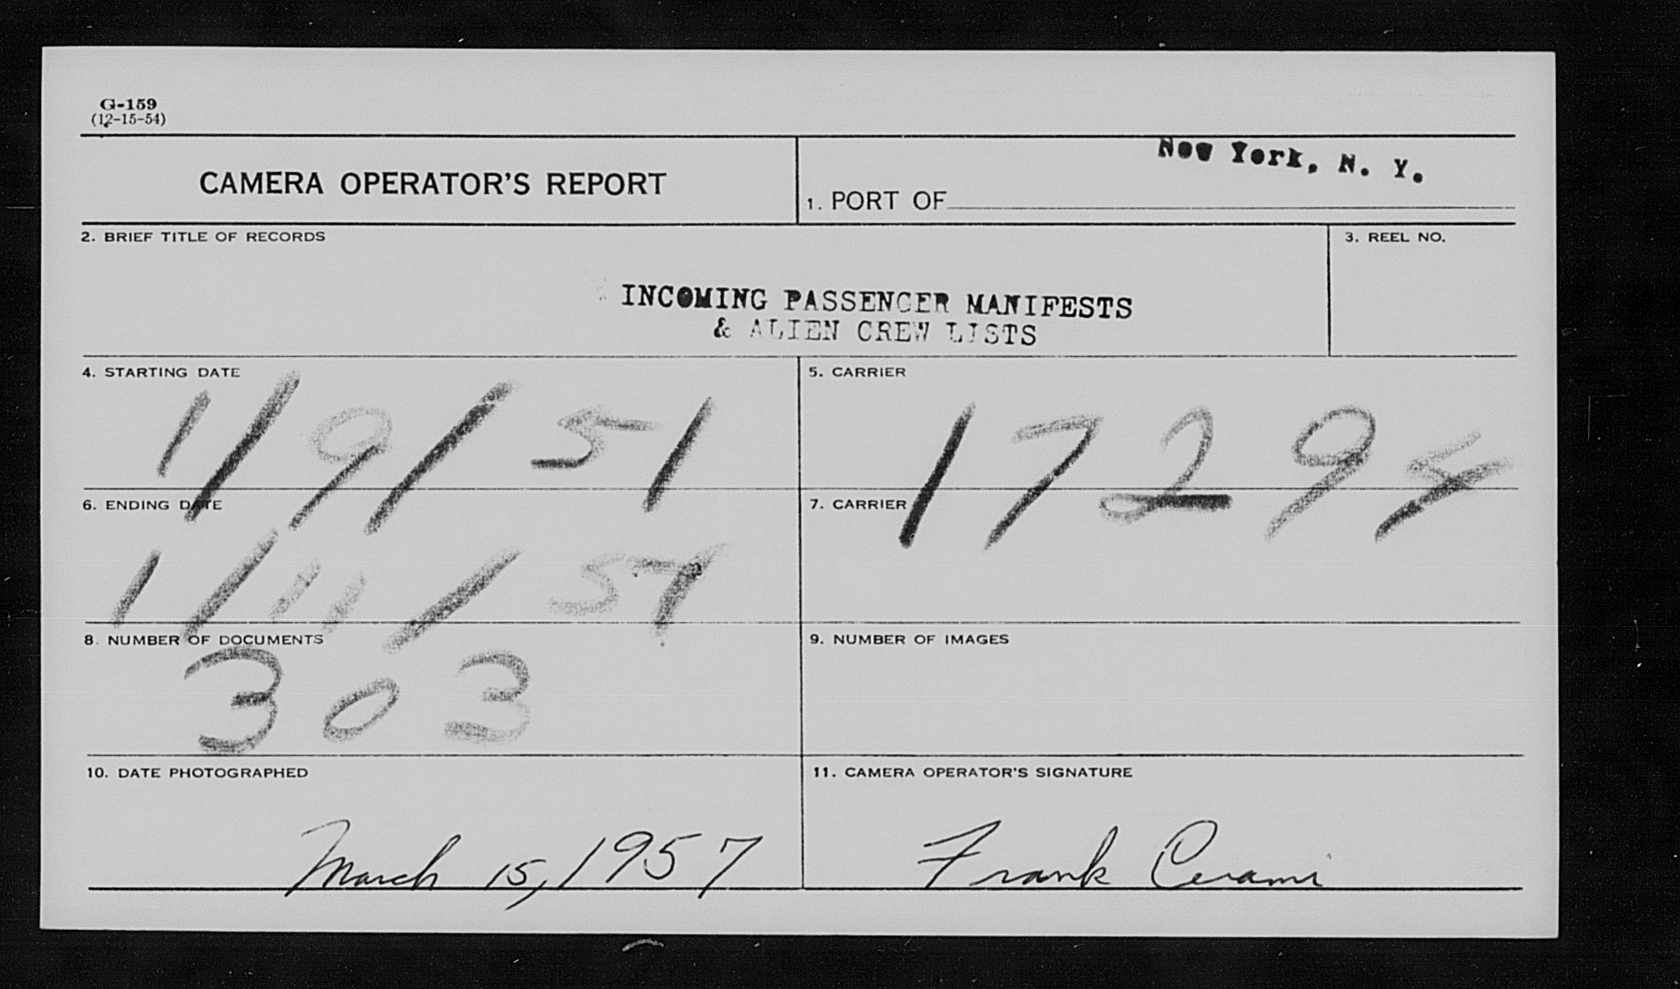 G-159
(12-15-54)
CAMERA OPERATOR'S REPORT
1. PORT OF New York, N. Y.
2. BRIEF TITLE OF RECORDS
3. REEL NO.
INCOMING PASSENGER MANIFESTS
& ALIEN CREW LISTS
4. STARTING DATE
1/9/51
5. CARRIER
17294
6. ENDING DATE
1/11/51
7. CARRIER
8. NUMBER OF DOCUMENTS
303
9. NUMBER OF IMAGES
10. DATE PHOTOGRAPHED
March 15, 1957
11. CAMERA OPERATOR'S SIGNATURE
Frank Cerami